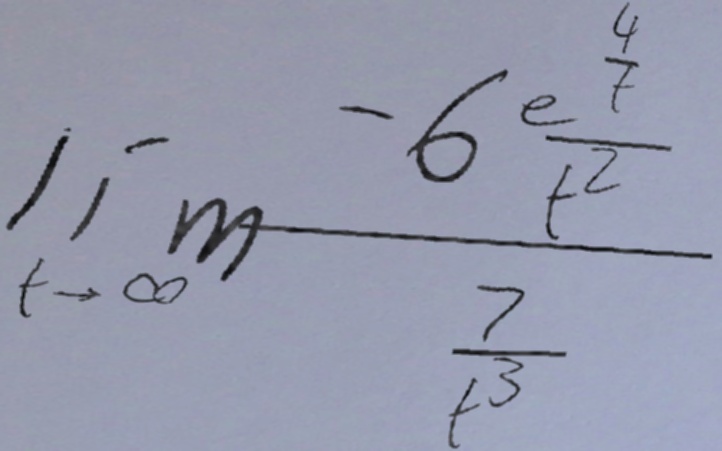 \lim_{t \to \infty} \frac{-6 \frac{e^{\frac{4}{t}}}{t^2}}{\frac{7}{t^3}}